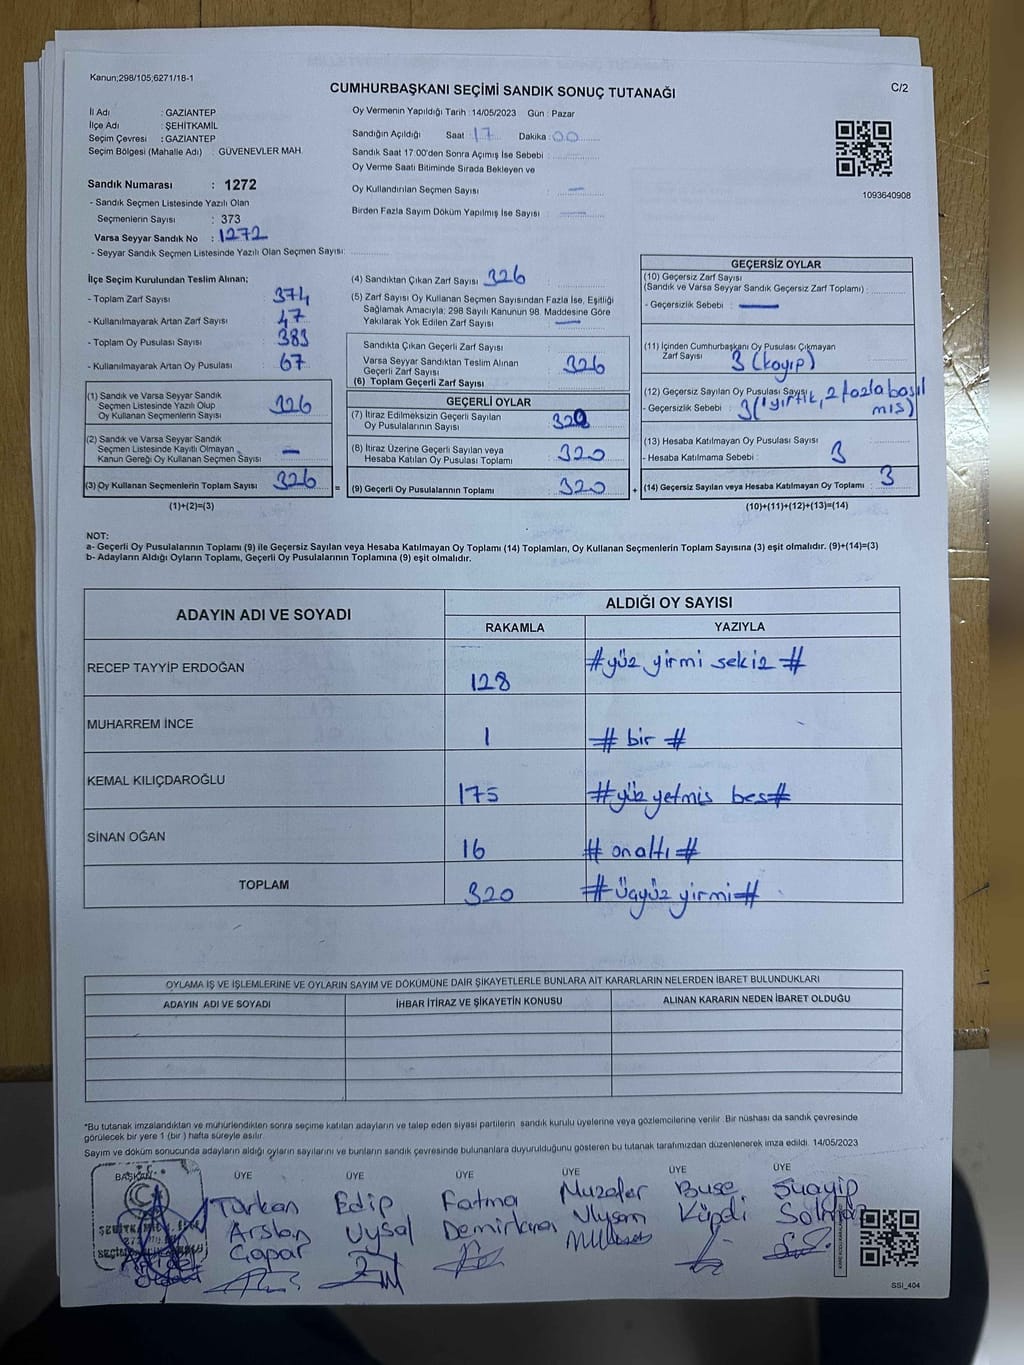 Kanun;298/105;6271/18-1
CUMHURBAŞKANI SEÇİMİ SANDIK SONUÇ TUTANAĞI
C/2
İl Adı : GAZİANTEP
İlçe Adı : ŞEHİTKAMİL
Seçim Çevresi : GAZİANTEP
Seçim Bölgesi (Mahalle Adı) : GÜVENEVLER MAH.
Sandık Numarası : 1272
- Sandık Seçmen Listesinde Yazılı Olan
Seçmenlerin Sayısı : 373
Varsa Seyyar Sandık No : 1272
- Seyyar Sandık Seçmen Listesinde Yazılı Olan Seçmen Sayısı:
Oy Vermenin Yapıldığı Tarih : 14/05/2023 Gün : Pazar
Sandığın Açıldığı Saat : 17 Dakika : 00
Sandık Saat 17:00'den Sonra Açımış İse Sebebi :
Oy Verme Saati Bitiminde Sırada Bekleyen ve
Oy Kullandırılan Seçmen Sayısı : —
Birden Fazla Sayım Döküm Yapılmış İse Sayısı : —
1093640908
İlçe Seçim Kurulundan Teslim Alınan;
- Toplam Zarf Sayısı : 374
- Kullanılmayarak Artan Zarf Sayısı : 47
- Toplam Oy Pusulası Sayısı : 383
- Kullanılmayarak Artan Oy Pusulası : 67
(1) Sandık ve Varsa Seyyar Sandık
Seçmen Listesinde Yazılı Olup
Oy Kullanan Seçmenlerin Sayısı : 326
(2) Sandık ve Varsa Seyyar Sandık
Seçmen Listesinde Kayıtlı Olmayan
Kanun Gereği Oy Kullanan Seçmen Sayısı : —
(3) Oy Kullanan Seçmenlerin Toplam Sayısı : 326
(1)+(2)=(3)
=
(4) Sandıktan Çıkan Zarf Sayısı : 326
(5) Zarf Sayısı Oy Kullanan Seçmen Sayısından Fazla İse, Eşitliği
Sağlamak Amacıyla; 298 Sayılı Kanunun 98. Maddesine Göre
Yakılarak Yok Edilen Zarf Sayısı : —
Sandıkta Çıkan Geçerli Zarf Sayısı
Varsa Seyyar Sandıktan Teslim Alınan
Geçerli Zarf Sayısı
(6) Toplam Geçerli Zarf Sayısı : 326
GEÇERLİ OYLAR
(7) İtiraz Edilmeksizin Geçerli Sayılan
Oy Pusulalarının Sayısı : 320
(8) İtiraz Üzerine Geçerli Sayılan veya
Hesaba Katılan Oy Pusulası Toplamı : 320
(9) Geçerli Oy Pusulalarının Toplamı : 320
+
GEÇERSİZ OYLAR
(10) Geçersiz Zarf Sayısı
(Sandık ve Varsa Seyyar Sandık Geçersiz Zarf Toplamı) :
- Geçersizlik Sebebi : —
(11) İçinden Cumhurbaşkanı Oy Pusulası Çıkmayan
Zarf Sayısı : 3 (kayıp)
(12) Geçersiz Sayılan Oy Pusulası Sayısı
- Geçersizlik Sebebi : 3 (1 yırtık, 2 fazla basıl
mış)
(13) Hesaba Katılmayan Oy Pusulası Sayısı
- Hesaba Katılmama Sebebi : 3
(14) Geçersiz Sayılan veya Hesaba Katılmayan Oy Toplamı : 3
(10)+(11)+(12)+(13)=(14)
NOT:
a- Geçerli Oy Pusulalarının Toplamı (9) ile Geçersiz Sayılan veya Hesaba Katılmayan Oy Toplamı (14) Toplamları, Oy Kullanan Seçmenlerin Toplam Sayısına (3) eşit olmalıdır. (9)+(14)=(3)
b- Adayların Aldığı Oyların Toplamı, Geçerli Oy Pusulalarının Toplamına (9) eşit olmalıdır.
ADAYIN ADI VE SOYADI ALDIĞI OY SAYISI
RAKAMLA YAZIYLA
RECEP TAYYİP ERDOĞAN 128 #yüz yirmi sekiz#
MUHARREM İNCE 1 # bir #
KEMAL KILIÇDAROĞLU 175 #yüz yetmis bes#
SİNAN OĞAN 16 # onaltı #
TOPLAM 320 #üçyüz yirmi#
OYLAMA İŞ VE İŞLEMLERİNE VE OYLARIN SAYIM VE DÖKÜMÜNE DAİR ŞİKAYETLERLE BUNLARA AİT KARARLARIN NELERDEN İBARET BULUNDUKLARI
ADAYIN ADI VE SOYADI İHBAR İTİRAZ VE ŞİKAYETİN KONUSU ALINAN KARARIN NEDEN İBARET OLDUĞU
*Bu tutanak imzalandıktan ve mühürlendikten sonra seçime katılan adayların ve talep eden siyasi partilerin sandık kurulu üyelerine veya gözlemcilerine verilir. Bir nüshası da sandık çevresinde
görülecek bir yere 1 (bir) hafta süreyle asılır.
Sayım ve döküm sonucunda adayların aldığı oyların sayılarını ve bunların sandık çevresinde bulunanlara duyurulduğunu gösteren bu tutanak tarafımızdan düzenlenerek imza edildi. 14/05/2023
BAŞKAN ÜYE ÜYE ÜYE ÜYE ÜYE ÜYE
Türkan Edip Fatma Muzafer Buse Şuayip
Arslan Uysal Demirkıran Küpdi
Çapar
SSİ_404